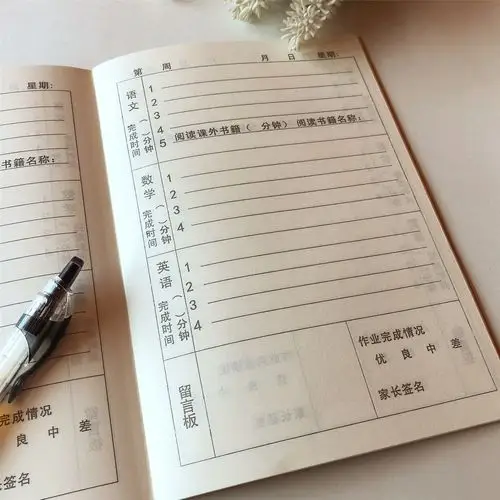 星期:
书籍名称:
作业完成情况
优 良 中 差
家长签名
第 周 月 日 星期:
语文
完成时间( )分钟
1
2
3
4
5 阅读课外书籍( 分钟) 阅读书籍名称:
数学
完成时间( )分钟
1
2
3
4
英语
完成时间( )分钟
1
2
3
4
留言板
作业完成情况
优 良 中 差
家长签名